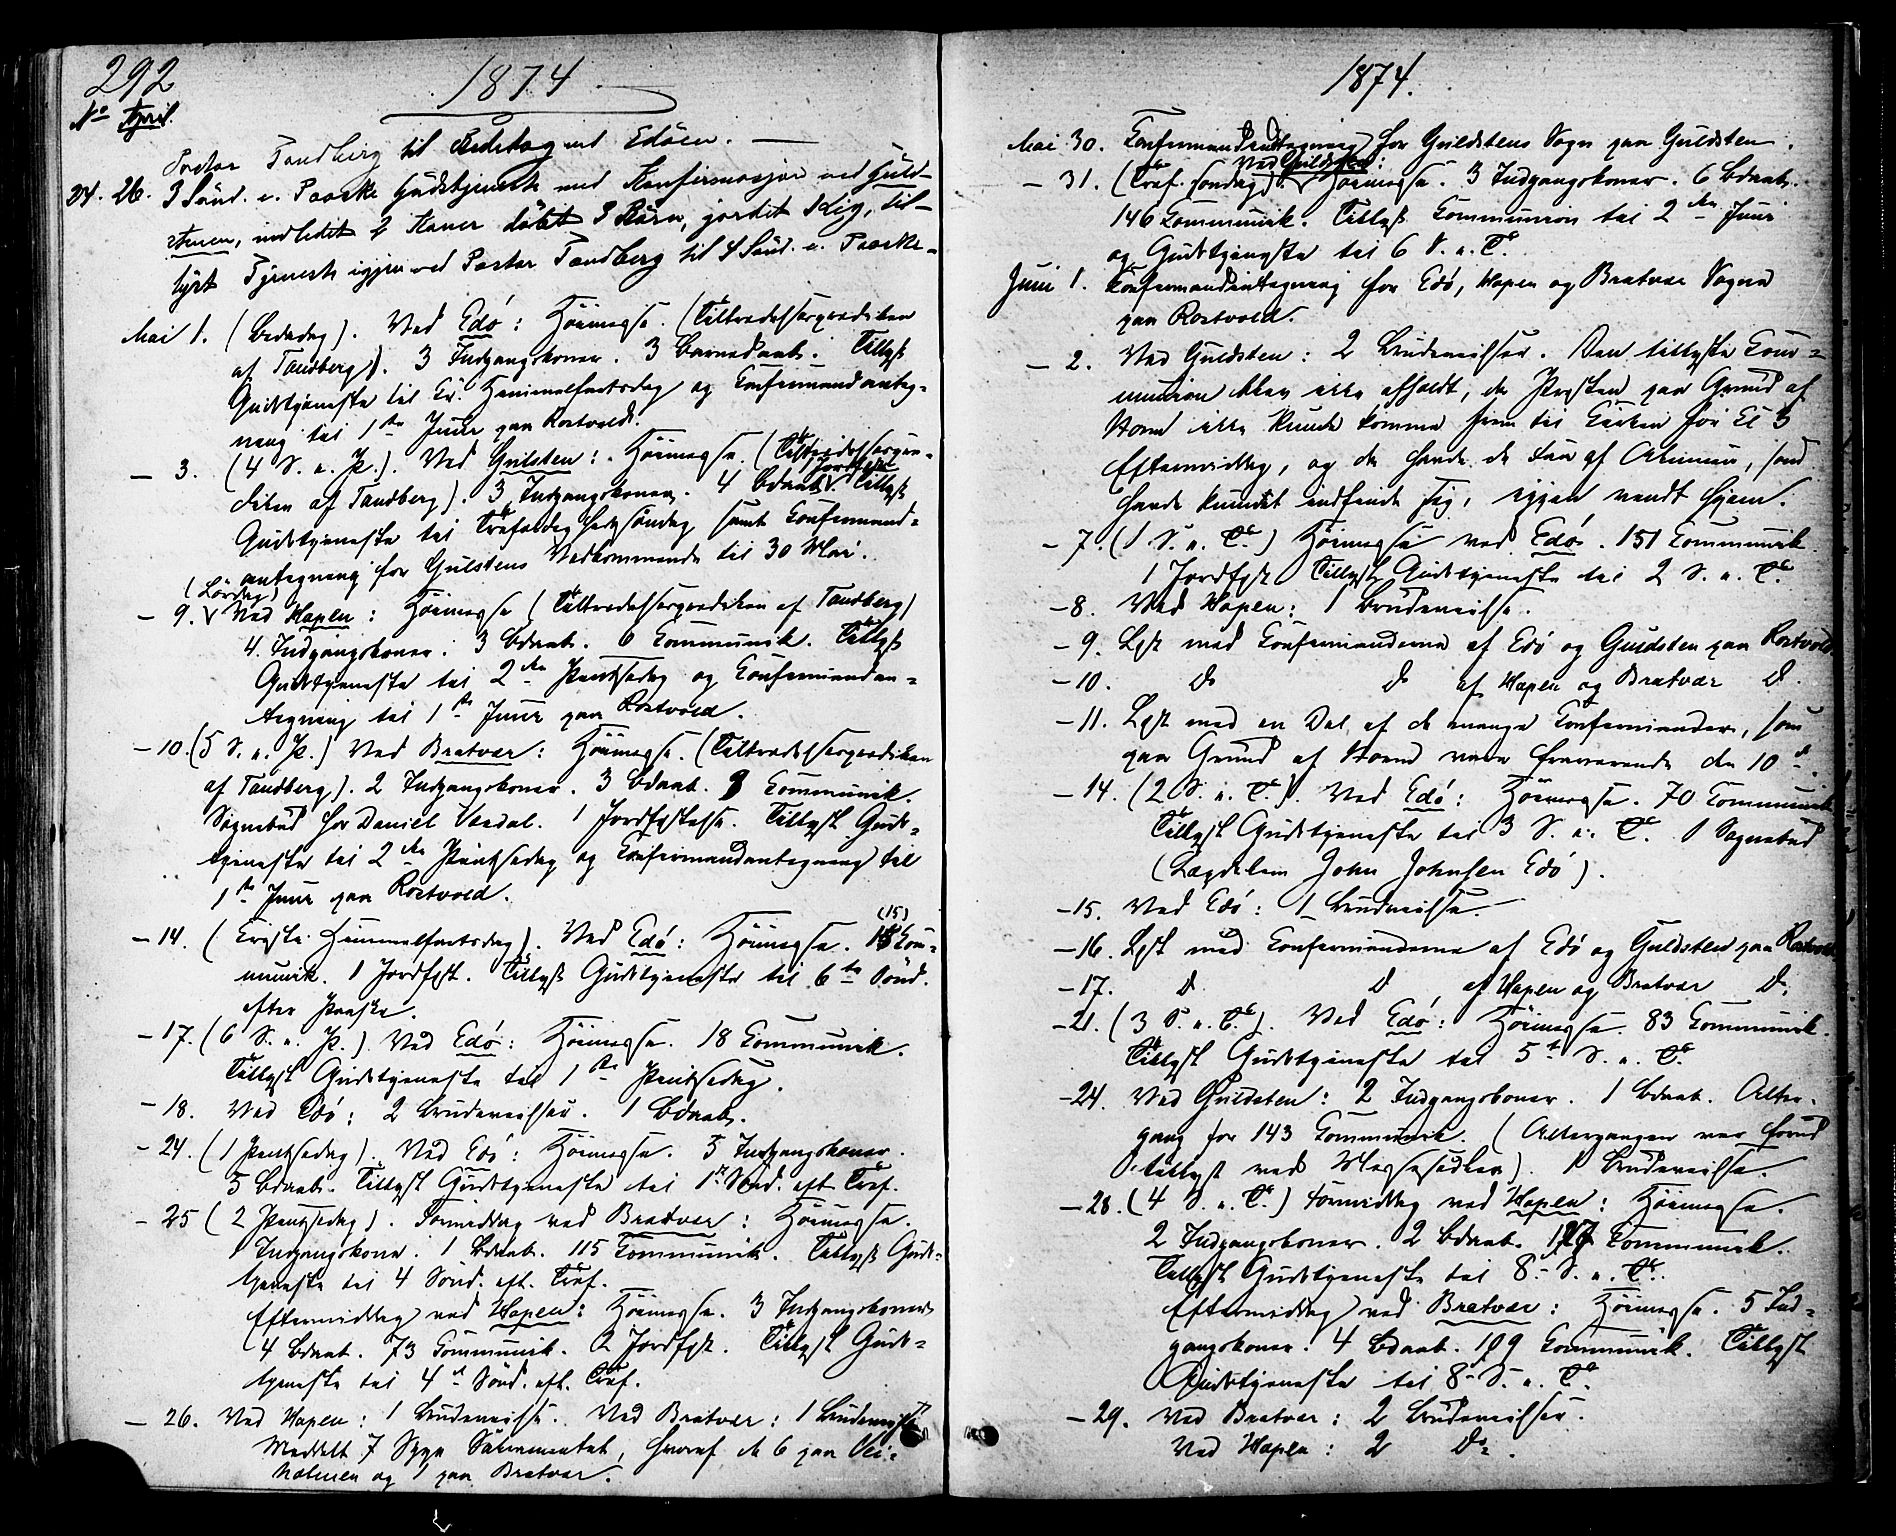 292
1874
No April.
Pastor Tandberg til Bededag ved Edöen. —
24. 26. 3 Sönd. e. Paaske Gudstjeneste med Konfirmasjon ved Guld-
stenen, indledet 2 Koner döbt 3 Börn, jordet 1 Lig, til-
lyst Tjeneste igjen ved Pastor Tandberg til 4 Sönd. e. Paaske.
Mai 1. (Bededag). Ved Edö: Höimesse. (Tiltrædelsesprædiken
af Tandberg). 3 Indgangskoner. 3 Barnedaab. Tillyst
Gudstjeneste til Kr. Himmelfartsdag og Konfirmandanteg-
ning til 1ste Juni paa Rostvold.
— 3. (4 S. e. P.). Ved Gulsten: Höimesse. (Tiltrædelsespræ-
diken af Tandberg). 3 Indgangskoner. 4 Bdaab. 1 Jordfæst. Tillyst
Gudstjeneste til Trefoldighedssöndag samt Konfirmand-
antegning for Gulstens Vedkommende til 30 Mai.
— 9. (Lördag) Ved Hopen: Höimesse (Tiltrædelsesprædiken af Tandberg)
4. Indgangskoner. 3 Bdaab. 6 Kommunik. Tillyst
Gudstjeneste til 2den Pintsedag og Konfirmandan-
tegning til 1ste Juni paa Rostvold.
— 10. (5 S. e. P.) Ved Bratvær: Höimesse. (Tiltrædelsesprædiken
af Tandberg). 2 Indgangskoner. 3 Bdaab. Kommunik.
Sognebud hos Daniel. 1 Jordfæstelse. Tillyst Guds-
tjeneste til 2den Pintsedag og Konfirmandantegning til
1ste Juni paa Rostvold.
— 14. (Christi Himmelfartsdag). Ved Edö: Höimesse. (15) Kom-
munik. 1 Jordfæst. Tillyst Gudstjeneste til 6te Sönd.
efter Paaske.
— 17. (6 S. e. P.). Ved Edö: Höimesse. 18 Kommunik.
Tillyst Gudstjeneste til 1ste Pintsedag.
— 18. Ved Edö: 2 Brudevielser. 1 Bdaab.
— 24. (1 Pintsedag). Ved Edö: Höimesse. 5 Indgangskoner.
5 Bdaab. Tillyst Gudstjeneste til 1ste Sönd. eft. Tref.
— 25 (2 Pintsedag). Formiddag ved Bratvær: Höimesse.
1 Indgangskone. 1 Bdaab. 115 Kommunik. Tillyst Guds-
tjeneste til 4 Sönd. eft. Tref.
Eftermiddag ved Hopen: Höimesse. 3 Indgangskoner
4 Bdaab. 73 Kommunik. 2 Jordfæst. Tillyst Guds-
tjeneste til 4de Sönd. eft. Tref.
— 26. Ved Hopen: 1 Brudevielse. Ved Bratvær: 1 Brudevielse
Meddelt 7 Syge Sakramentet, hvoraf de 6 paa Vei-
holmen og 1 paa Bratvær.
1874.
Mai 30. Konfirmandantegning for Guldstens Sogn paa Guldsten.
— 31. (Tref. söndag). Ved Guldsten: Höimesse. 3 Indgangskoner. 6 Bdaab.
146 Kommunik. Tillyst Kommunion til 2den Juni
og Gudstjeneste til 6 S. e. T.
Juni 1. Konfirmandantegning for Edö, Hopen og Bratvær Sogne
paa Rostvold.
— 2. Ved Guldsten: 2 Brudevielser. Den tillyste Kom-
munion blev ikke afholdt, da Præsten paa Grund af
Storm ikke kunde komme frem til Kirken för Kl 3
Eftermiddag, og da havde de Faa af Almuen, som
havde kunnet indfinde sig, igjen vendt hjem.
— 7. (1 S. e. T.) Höimesse ved Edö. 151 Kommunik.
1 Jordfæst. Tillyst Gudstjeneste til 2 S. e. T.
— 8. Ved Hopen: 1 Brudevielse.
— 9. Læst med Konfirmanderne af Edö og Guldsten paa Rostvold
— 10. Do Do af Hopen og Bratvær Do.
— 11. Læst med en Del af de mange Konfirmander, som
paa Grund af Storm vare fraværende den 10de.
— 14. (2 S. e. T.). Ved Edö: Höimesse. 70 Kommunik
Tillyst Gudstjeneste til 3 S. e. T. 1 Sognebud
(Lægdslem John Johnsen Edö).
— 15. Ved Edö: 1 Brudevielse.
— 16. Læst med Konfirmanderne af Edö og Guldsten paa Rostvold
— 17. Do Do af Hopen og Bratvær Do.
— 21. (3 S. e. T.). Ved Edö: Höimesse. 83 Kommunik.
Tillyst Gudstjeneste til 5te S. e. T.
— 24. Ved Guldsten: 2 Indgangskoner. 1 Bdaab. Alter-
gang for 143 Kommunik. (Altergangen var forud
tillyst ved Messesedler). 1 Brudevielse.
— 28. (4 S. e. T.) Formiddag ved Hopen: Höimesse.
2 Indgangskoner. 2 Bdaab. Kommunik.
Tillyst Gudstjeneste til 8 S. e. T.
Eftermiddag ved Bratvær: Höimesse. 5 Ind-
gangskoner. 4 Bdaab. 109 Kommunik. Tillyst
Gudstjeneste til 8 S. e. T.
— 29. Ved Bratvær: 2 Brudevielser.
Ved Hopen: 2 Do.